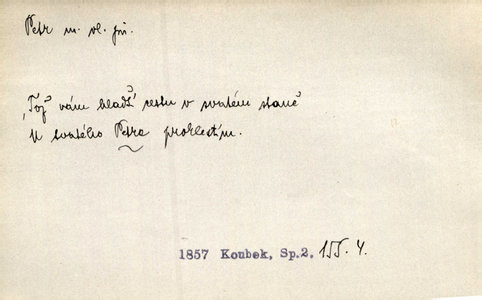 Petr m. vl. jm.
„Tož vám kladu cestu v svatém staně
U svatého Petra proklestím.
1857 Koubek, Sp.2, 155. 4.